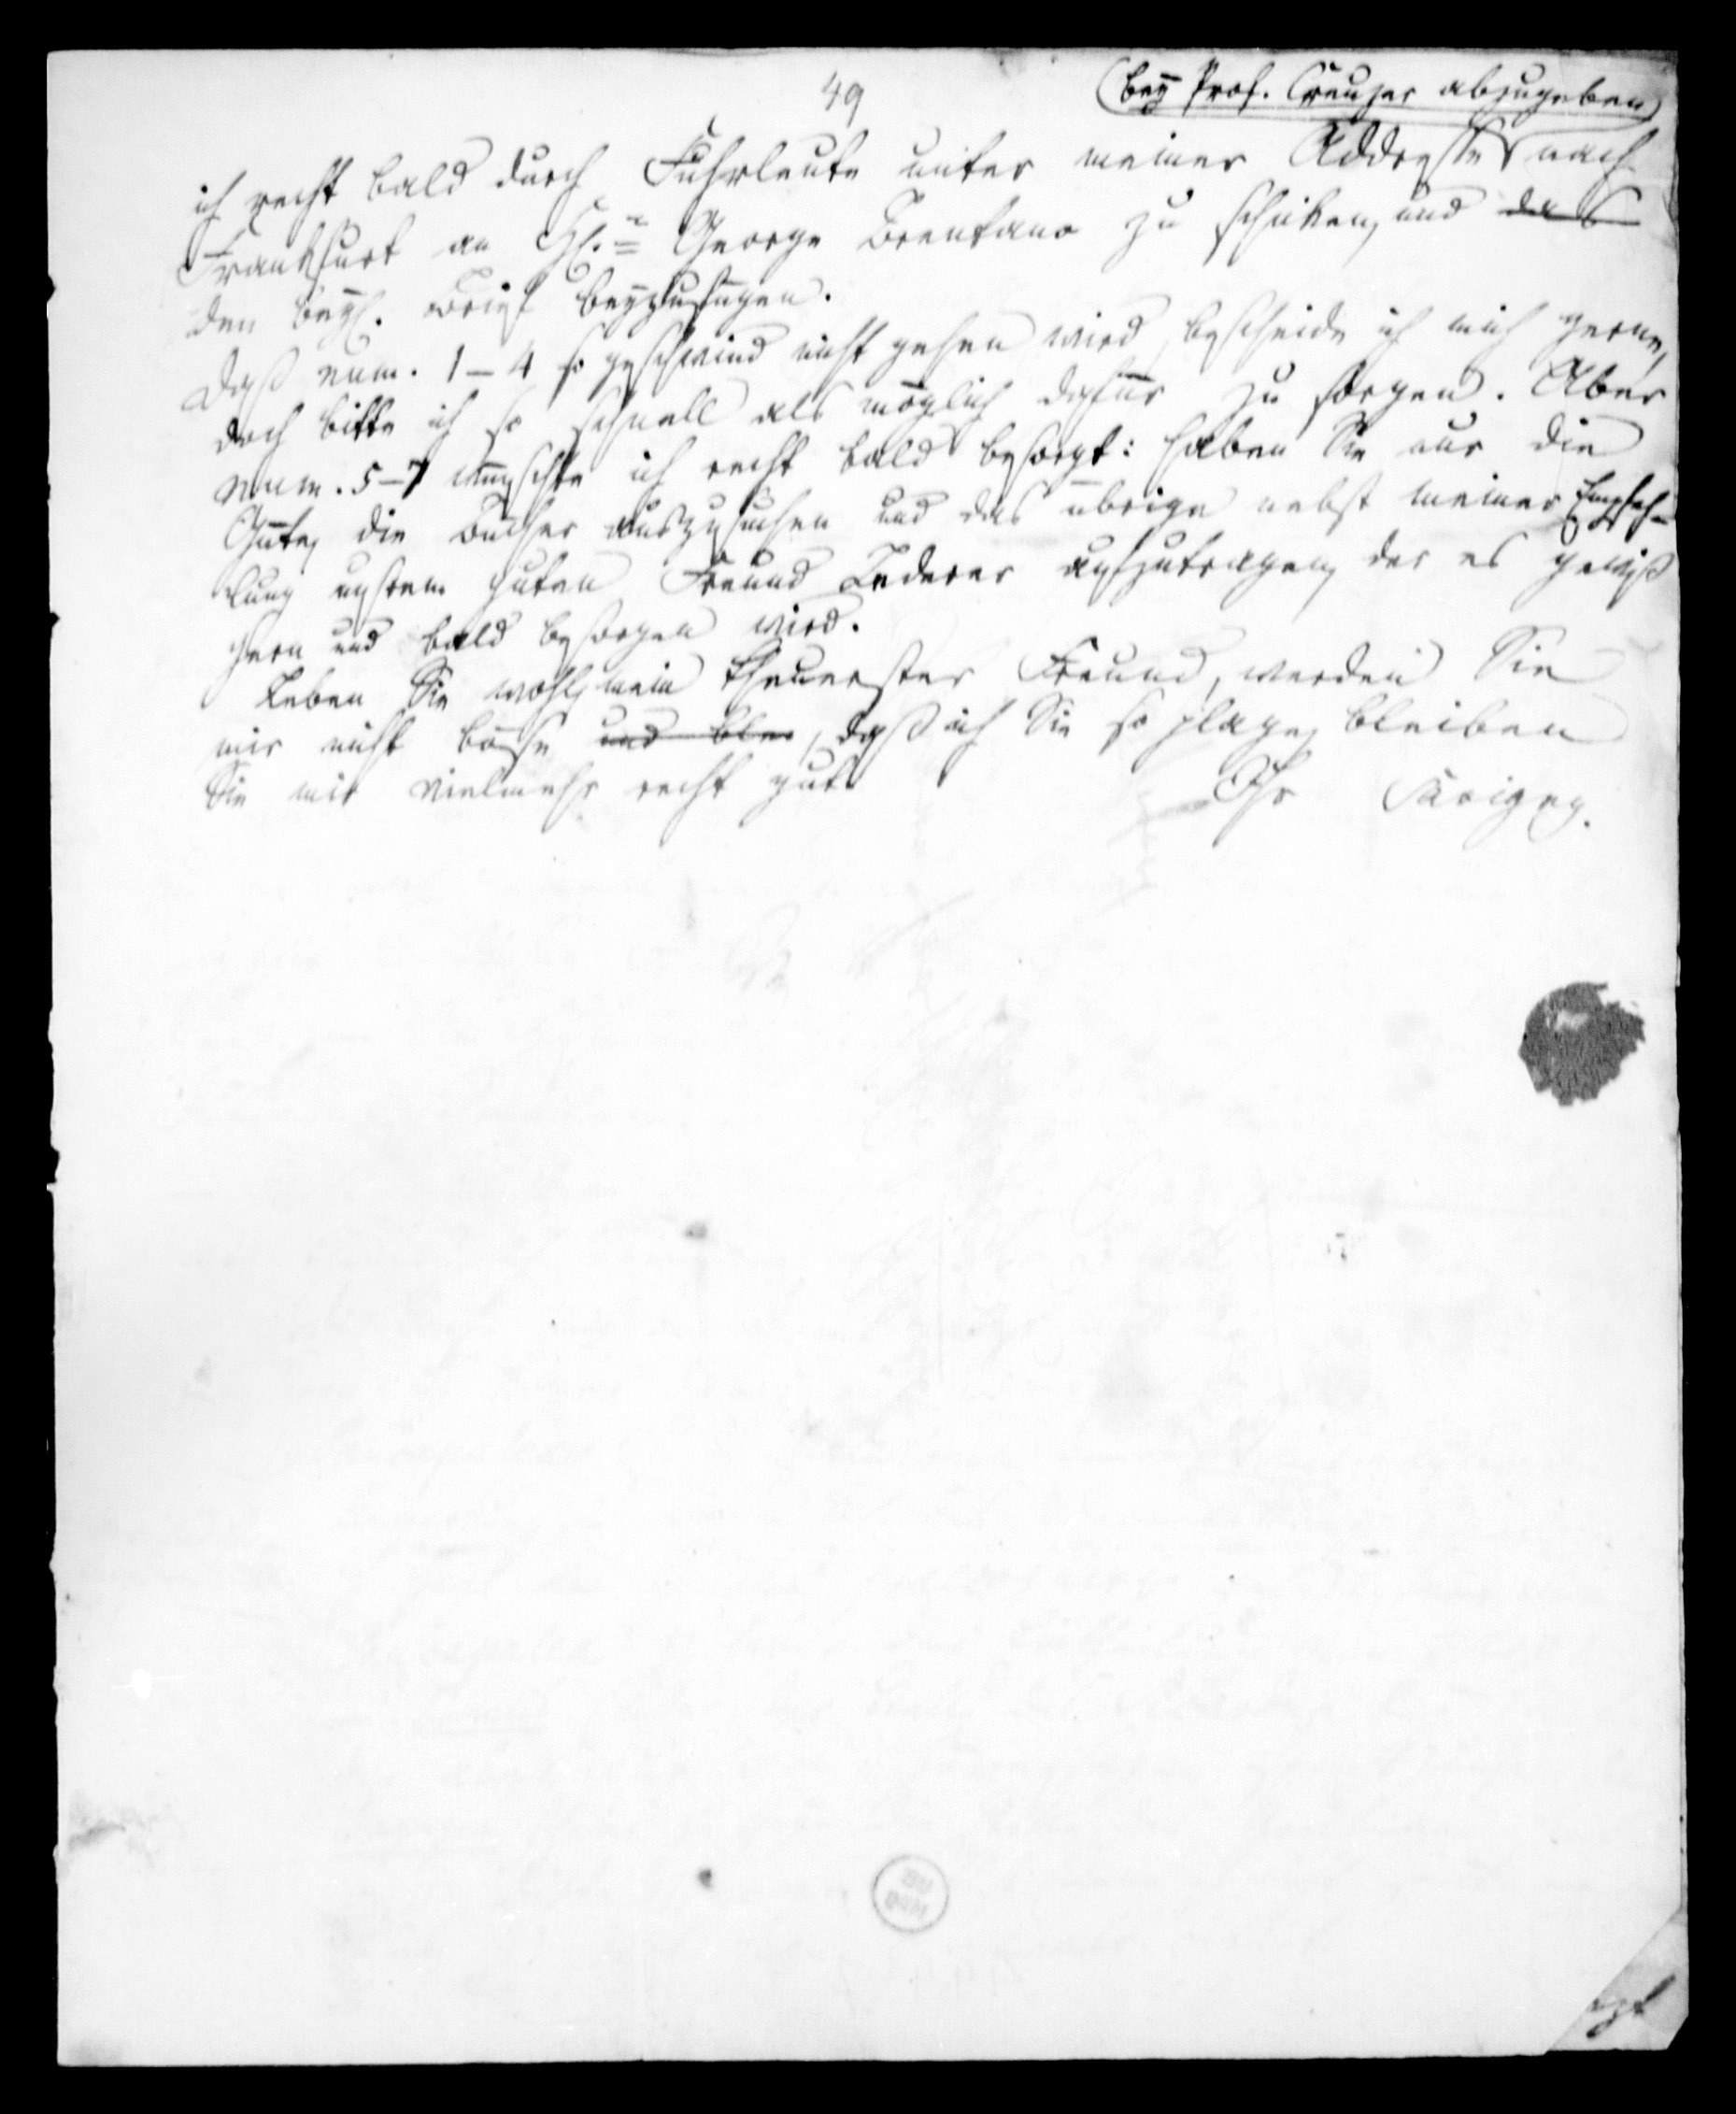 49
(bey Prof. Creuzer abzugeben)
ich recht bald durch Fuhrleute unter meiner Addresse nach
Frankfurt an H. George Brentano zu schicken, und das
den beyl. Brief beyzufügen.
Daß num. 1–4 so geschwind nicht gehen wird, bescheide ich mich gerne,
doch bitte ich so schnell als möglich dafür zu sorgen. Aber
num. 5–7 wünschte ich recht bald besorgt: haben Sie nur die
Güte, die Bücher auszusuchen und das übrige nebst meiner Empfeh-
lung unsrem guten Freund Lederer aufzutragen, der es gewiß
gern und bald besorgen wird.
Leben Sie wohl, mein theuerster Freund, werden Sie
mir nicht böse und blei, daß ich Sie so plage, bleiben
Sie mir vielmehr recht gut
Ihr Savigny.